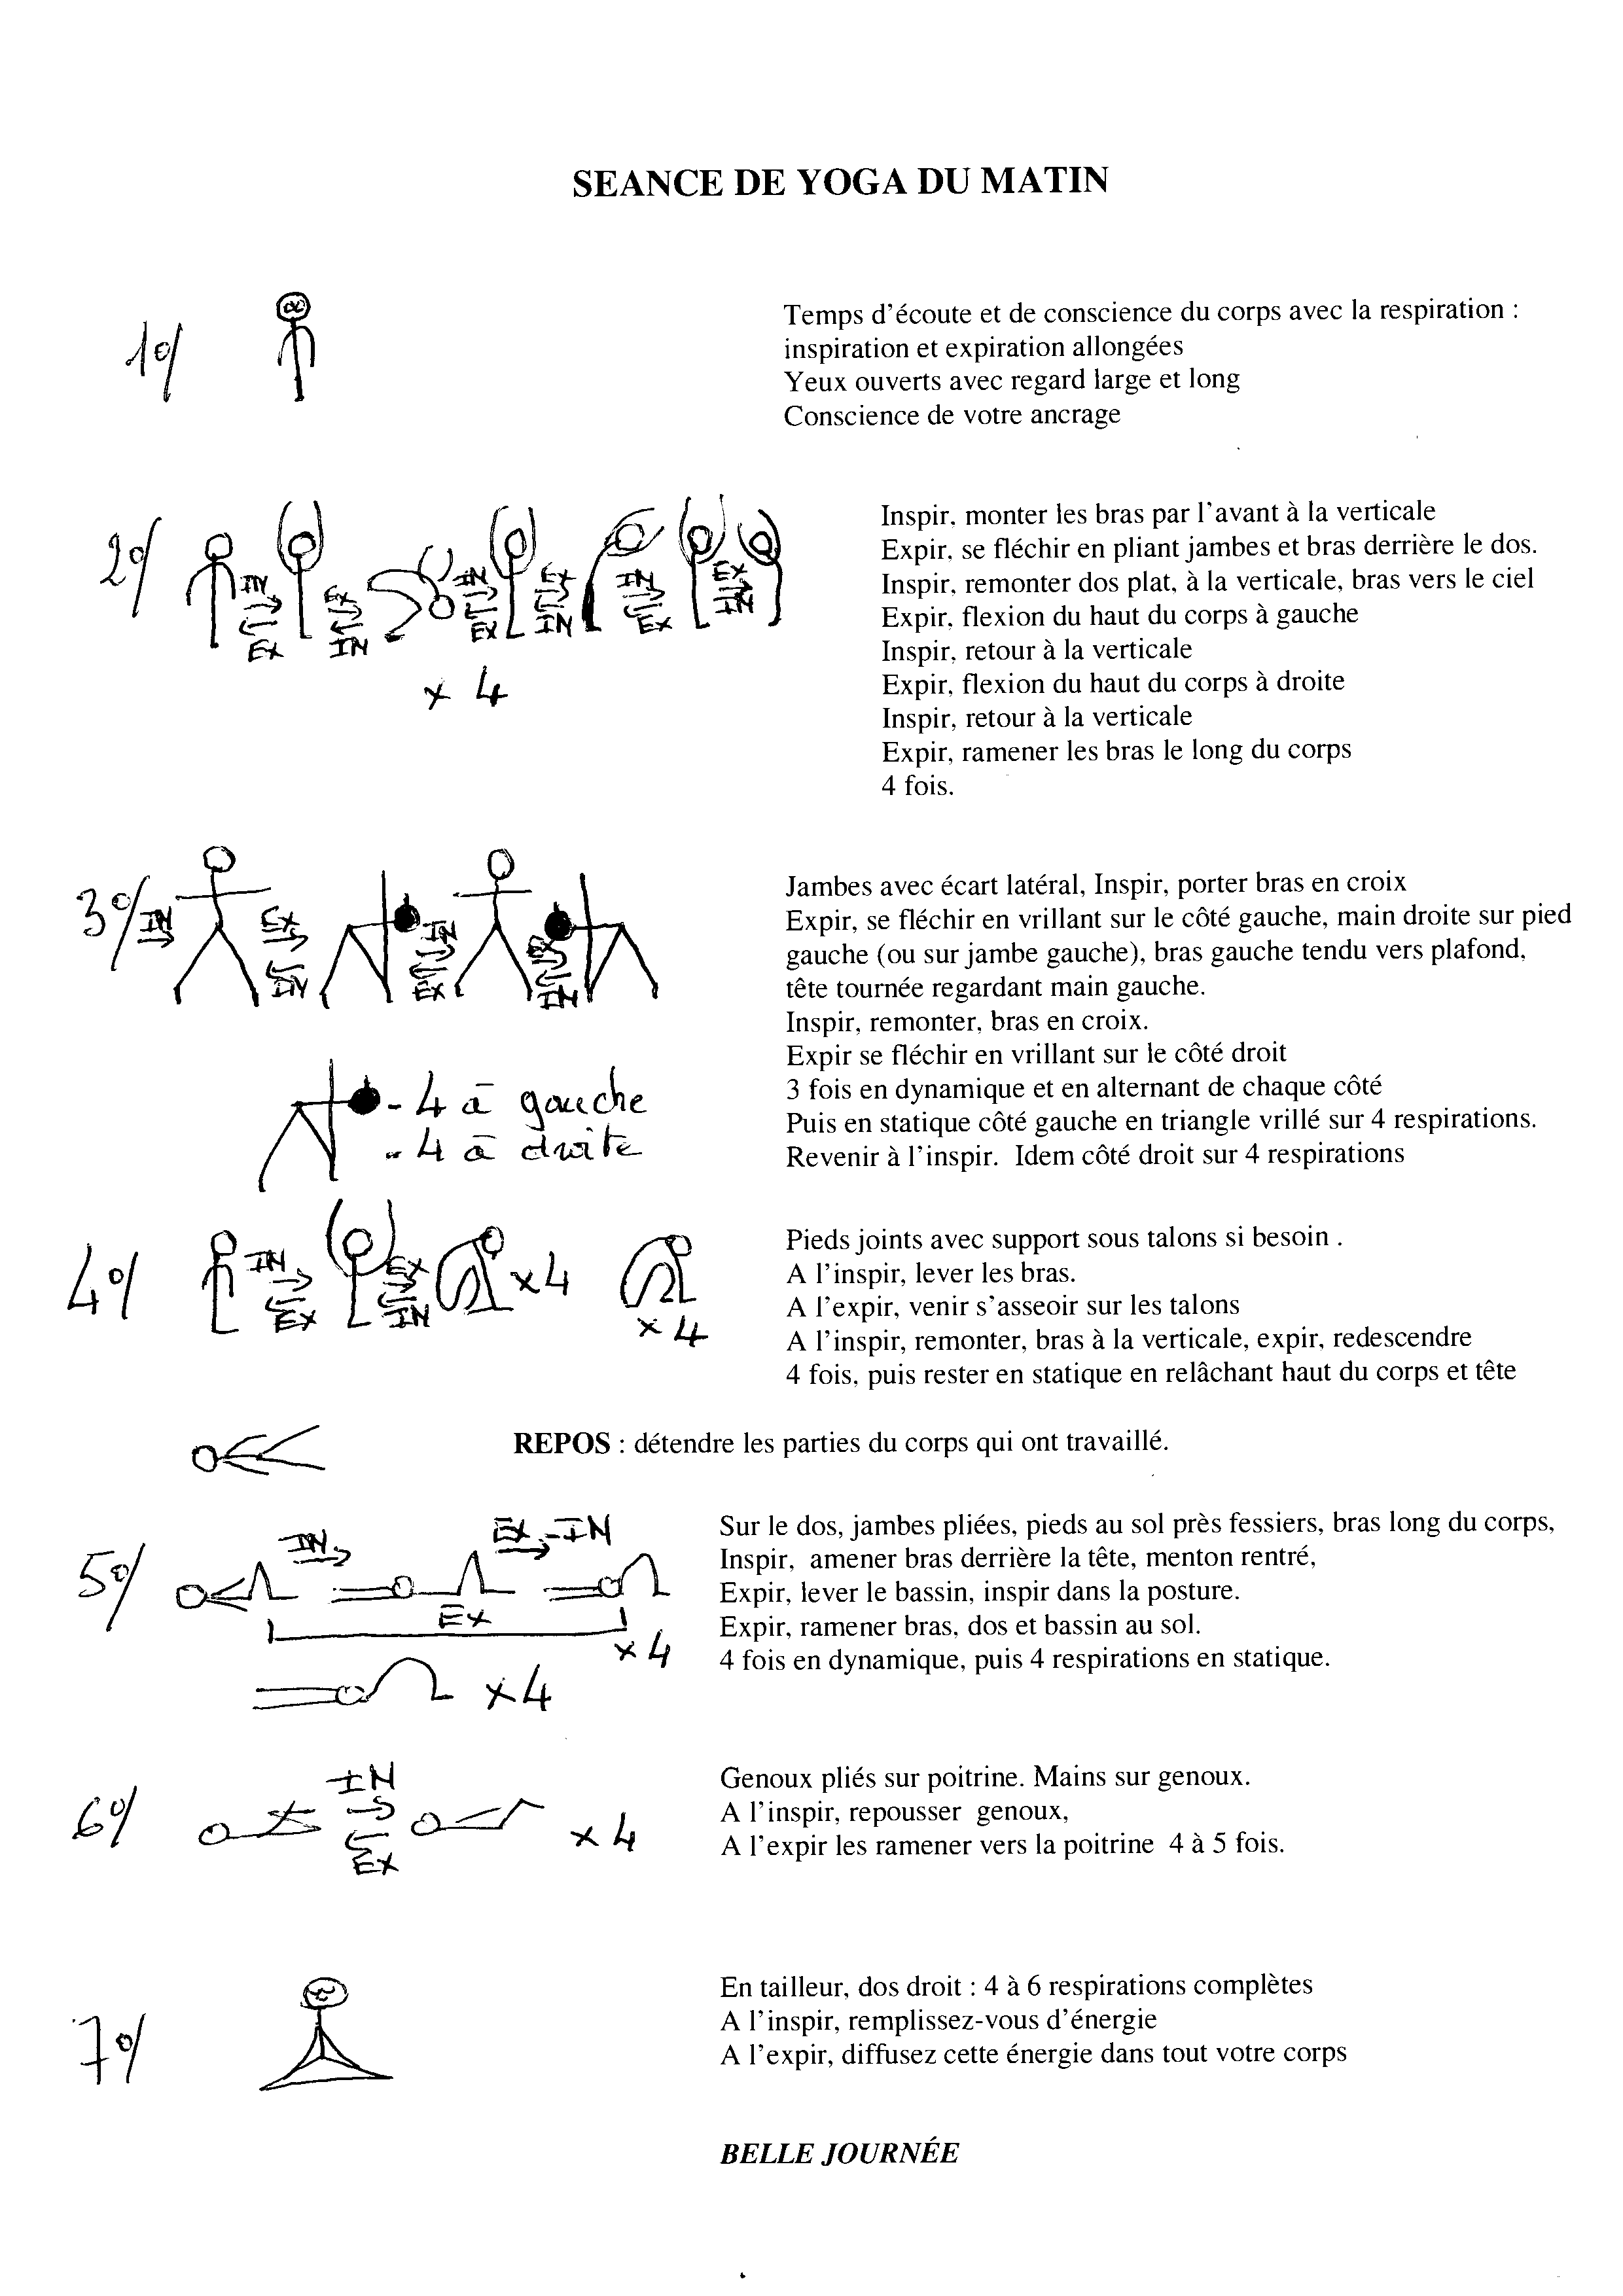 SEANCE DE YOGA DU MATIN
1°/
Temps d'écoute et de conscience du corps avec la respiration :
inspiration et expiration allongées
Yeux ouverts avec regard large et long
Conscience de votre ancrage
2°/
IN
EX
EX
IN
IN
EX
EX
IN
IN
EX
EX
IN
x 4
Inspir, monter les bras par l'avant à la verticale
Expir, se fléchir en pliant jambes et bras derrière le dos.
Inspir, remonter dos plat, à la verticale, bras vers le ciel
Expir, flexion du haut du corps à gauche
Inspir, retour à la verticale
Expir, flexion du haut du corps à droite
Inspir, retour à la verticale
Expir, ramener les bras le long du corps
4 fois.
3°/
IN
EX
IN
IN
EX
EX
IN
- 4 à gauche
- 4 à droite
Jambes avec écart latéral, Inspir, porter bras en croix
Expir, se fléchir en vrillant sur le côté gauche, main droite sur pied
gauche (ou sur jambe gauche), bras gauche tendu vers plafond,
tête tournée regardant main gauche.
Inspir, remonter, bras en croix.
Expir se fléchir en vrillant sur le côté droit
3 fois en dynamique et en alternant de chaque côté
Puis en statique côté gauche en triangle vrillé sur 4 respirations.
Revenir à l'inspir. Idem côté droit sur 4 respirations
4°/
IN
EX
EX
IN
x4
x 4
Pieds joints avec support sous talons si besoin .
A l'inspir, lever les bras.
A l'expir, venir s'asseoir sur les talons
A l'inspir, remonter, bras à la verticale, expir, redescendre
4 fois, puis rester en statique en relâchant haut du corps et tête
REPOS : détendre les parties du corps qui ont travaillé.
5°/
IN
EX - IN
EX
x 4
x4
Sur le dos, jambes pliées, pieds au sol près fessiers, bras long du corps,
Inspir, amener bras derrière la tête, menton rentré,
Expir, lever le bassin, inspir dans la posture.
Expir, ramener bras, dos et bassin au sol.
4 fois en dynamique, puis 4 respirations en statique.
6°/
IN
EX
x 4
Genoux pliés sur poitrine. Mains sur genoux.
A l'inspir, repousser genoux,
A l'expir les ramener vers la poitrine 4 à 5 fois.
7°/
En tailleur, dos droit : 4 à 6 respirations complètes
A l'inspir, remplissez-vous d'énergie
A l'expir, diffusez cette énergie dans tout votre corps
BELLE JOURNÉE